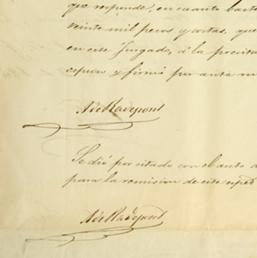 que responde, en cuanto baste
veinte mil pesos y costas, que
en este Juzgado, á la
espuso y firmó por ante

Se dió por citado con el auto a
para la remision de este esped